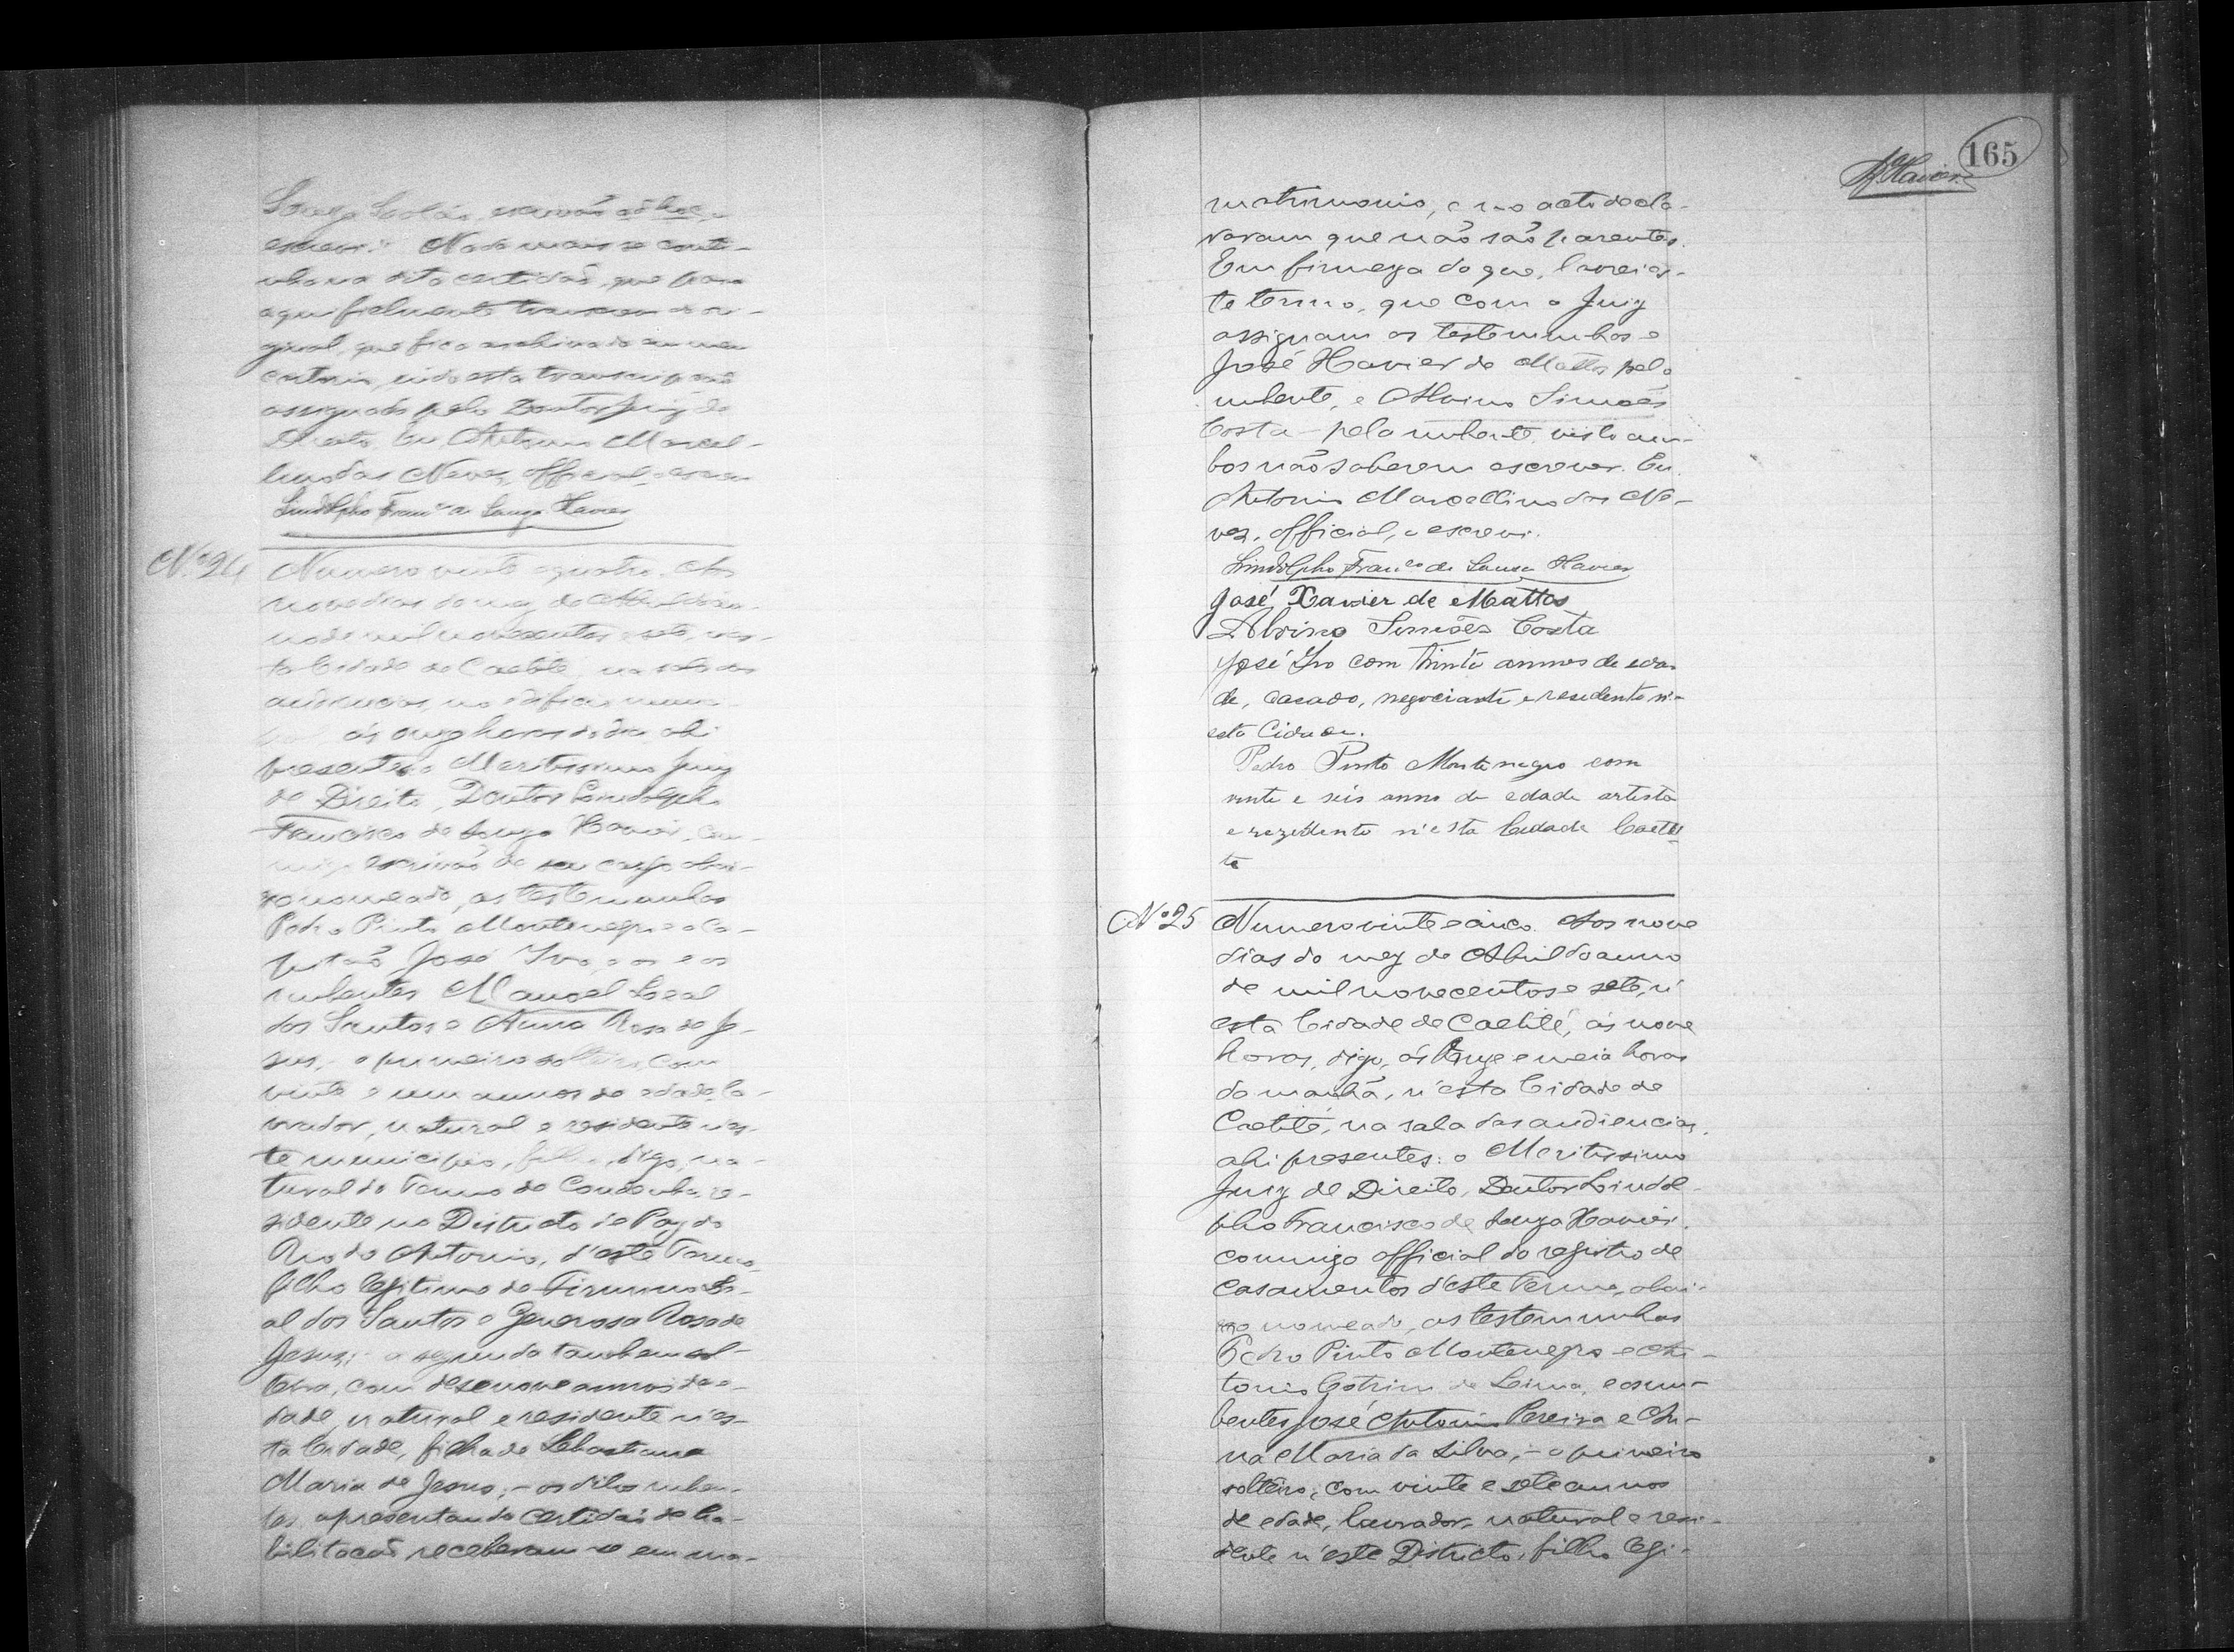 Souza Leolão, escrivão ad hoc, o
escrevi." Nada mais se conti-
nha na dita certidão, que para
aqui fielmente transcrevi do ori-
ginal, que fica archivado em meu
cartorio, indo esta transcripção
assignada pelo Doutor Juiz de
Direito. Eu Antonio Marcel-
lino das Neves, Official, o escrevi
Lindolpho Franco de Souza Xavier
Nº 24
Numero vinte e quatro. Aos
nove dias do mez de Abril do an-
no de mil novecentos e sete, nes-
ta Cidade de Caetité, na sala das
audiencias, no edificio muni-
ás onze horas do dia, ahi
presentes o Meritissimo Juiz
de Direito, Doutor Lindolpho
Francisco de Souza Xavier, com-
migo escrivão de seu cargo abai-
xo nomeado, as testemunhas
Pedro Pinto Montenegro e o Ca-
pitão José Ivo, e os
nubentes Manoel Leal
dos Santos e Anna Rosa de Je-
sus, - o primeiro solteiro, com
vinte e um annos de edade, la-
vrador, natural e residente nes-
te municipio, filho, digo, na-
tural do Termo de Condeuba, re-
sidente no Districto de Paz do
Rio do Antonio, d'este Termo,
filho legitimo de Firmino Le-
al dos Santos e Generosa Rosa de
Jesus; - a segunda tambem sol-
teira, com desenove annos de e-
dade, natural e residente n'es-
ta Cidade, filha de Sebastiana
Maria de Jesus; - os ditos nuben-
tes apresentando certidão de ha-
bilitação receberam-se em ma-
165
Xavier
matrimonio, e no acto decla-
raram que não são parentes.
Em firmeza do que, lavrei es-
te termo, que com o Juiz
assignam as testemunhas e
José Xavier de Mattos pelo
nubente, e Alvino Simões
Costa - pela nubente, visto am-
bos não saberem escrever. Eu
Antonio Marcellino das Ne-
ves, official, o escrevi.
Lindolpho Franco de Souza Xavier
José Xavier de Mattos
Alvino Simões Costa
José Ivo com trinta annos de eda-
de, casado, negociante e residente n'-
esta Cidade.
Pedro Pinto Montenegro com
vinte e seis anno de edade artista
e rezidente n'esta Cidade Caeti
te
Nº 25
Numero vinte e cinco. Aos nove
dias do mez de Abril do anno
de mil novecentos e sete, n'
esta Cidade de Caetité, ás nove
horas, digo, ás onze e meia horas
da manhã, n'esta Cidade de
Caetité, na sala das audiencias,
ahi presentes: o Meritissimo
Juiz de Direito, Doutor Lindol-
pho Francisco de Souza Xavier,
commigo official do registro de
casamentos d'este Termo, abai-
xo nomeado, as testemunhas
Pedro Pinto Montenegro e An-
tonio Cotrim de Lima, e os nu-
bentes José Antonio Pereira e An-
na Maria da Silva, - o primeiro
solteiro, com vinte e sete annos
de edade, lavrador, natural e resi-
dente n'este Districto, filho legi-